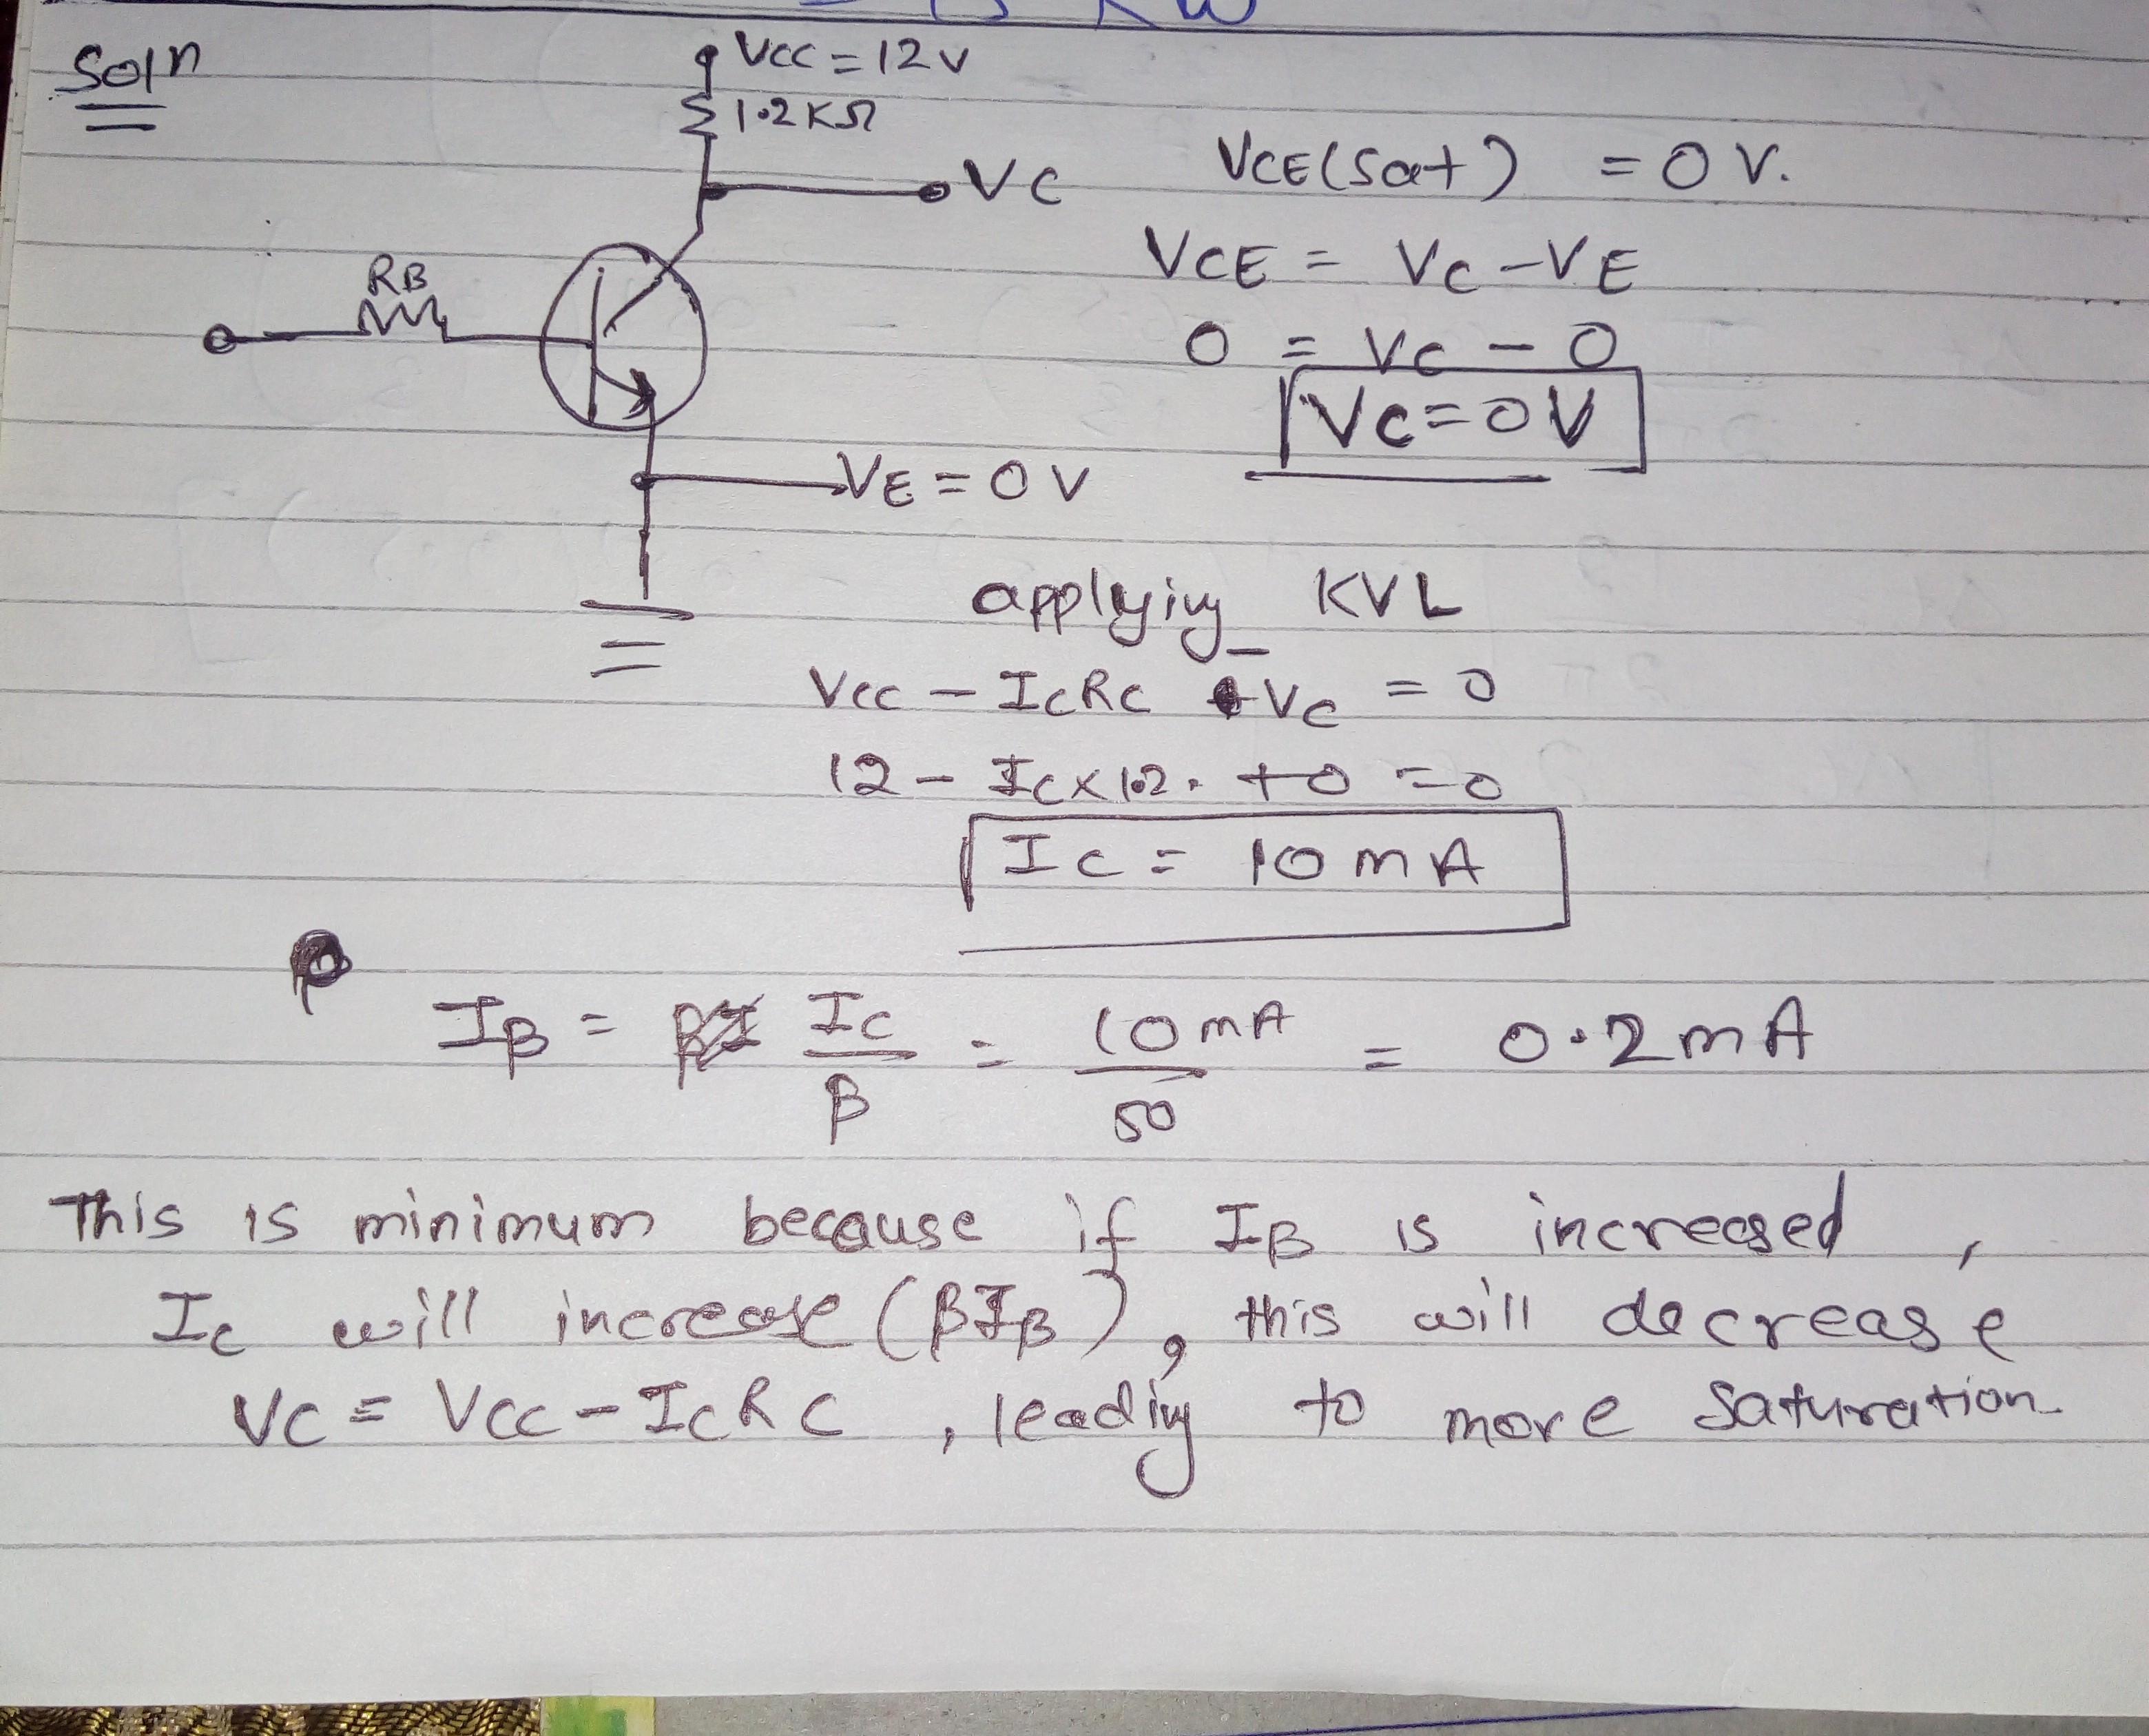 Soln
VCC = 12V
1.2KΩ
VC
RB
VE = 0V
VCE(Sat) = 0V.
VCE = VC - VE
0 = VC - 0
VC = 0V
applying KVL
VCC - ICRC + VC = 0
12 - IC×1.2 + 0 = 0
IC = 10mA
IB = IC/β = 10mA/50 = 0.2mA
This is minimum because if IB is increased,
IC will increase (βIB), this will decrease
VC = VCC - ICRC, leading to more Saturation